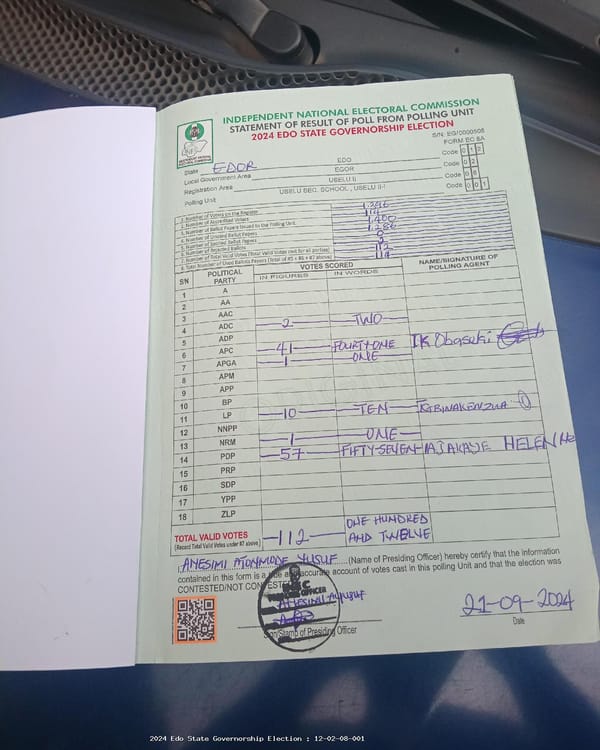 INDEPENDENT NATIONAL ELECTORAL COMMISSION
STATEMENT OF RESULT OF POLL FROM POLLING UNIT
2024 EDO STATE GOVERNORSHIP ELECTION
S/N: EG/0000505
FORM EC 8A
State EDOR EDO Code 0 1 2
Local Government Area EGOR Code 0 2
Registration Area USELU II Code 0 8
Polling Unit USELU SEC. SCHOOL , USELU II-I Code 0 0 1
1. Number of Voters on the Register
2. Number of Accredited Voters
3. Number of Ballot Papers Issued to the Polling Unit 1,400
4. Number of Unused Ballot Papers 1,286
5. Number of Spoiled Ballot Papers 0
6. Number of Rejected Ballots
7. Number of Total Valid Votes (Total Valid Votes cast for all parties) 112
8. Total Number of Used Ballot Papers (Total of #5 + #6 + #7 above) 114
SN POLITICAL PARTY VOTES SCORED NAME/SIGNATURE OF POLLING AGENT
IN FIGURES IN WORDS
1 A
2 AA
3 AAC
4 ADC 2 TWO
5 ADP
6 APC 41 FOURTY ONE IK Obaseki
7 APGA 1 ONE
8 APM
9 APP
10 BP
11 LP 10 TEN
12 NNPP
13 NRM 1 ONE
14 PDP 57 FIFTY-SEVEN HELEN
15 PRP
16 SDP
17 YPP
18 ZLP
TOTAL VALID VOTES 112 ONE HUNDRED AND TWELVE
(Record Total Valid Votes under #7 above)
I, YUSUF (Name of Presiding Officer) hereby certify that the information
contained in this form is a true and accurate account of votes cast in this polling Unit and that the election was
CONTESTED/NOT CONTESTED
INEC
PRESIDING OFFICER
Sign/Stamp of Presiding Officer
21-09-2024
Date
2024 Edo State Governorship Election : 12-02-08-001